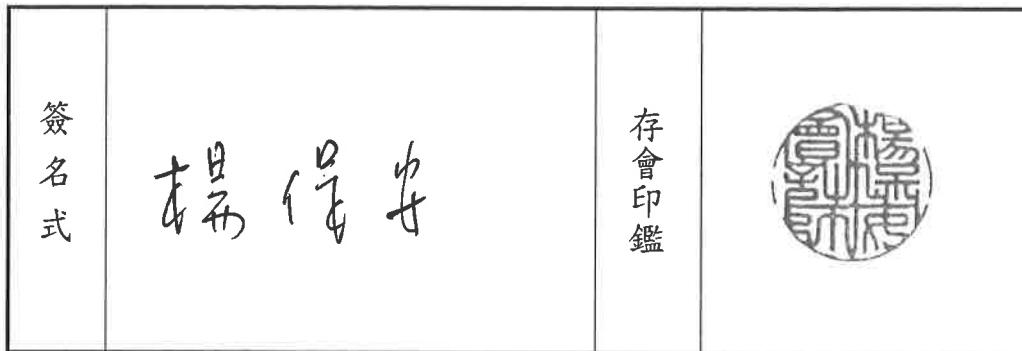 簽名式
楊保安
存會印鑑